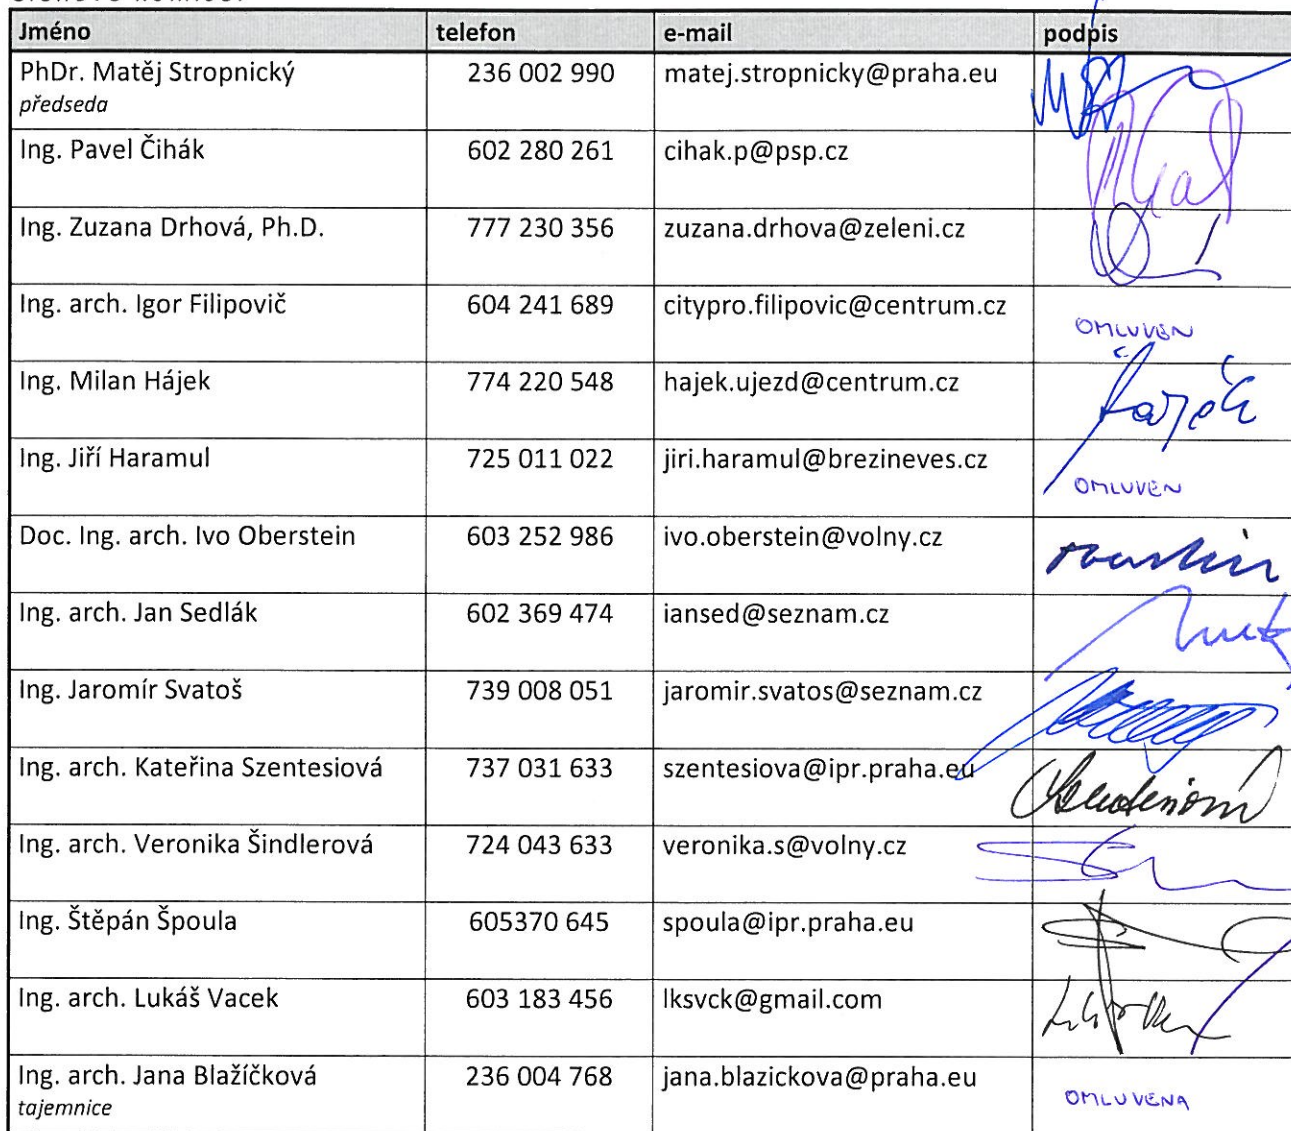 Jméno telefon e-mail podpis
PhDr. Matěj Stropnický 236 002 990 matej.stropnicky@praha.eu
předseda
Ing. Pavel Čihák 602 280 261 cihak.p@psp.cz
Ing. Zuzana Drhová, Ph.D. 777 230 356 zuzana.drhova@zeleni.cz
Ing. arch. Igor Filipovič 604 241 689 citypro.filipovic@centrum.cz OMLUVEN
Ing. Milan Hájek 774 220 548 hajek.ujezd@centrum.cz
Ing. Jiří Haramul 725 011 022 jiri.haramul@brezineves.cz OMLUVEN
Doc. Ing. arch. Ivo Oberstein 603 252 986 ivo.oberstein@volny.cz
Ing. arch. Jan Sedlák 602 369 474 iansed@seznam.cz
Ing. Jaromír Svatoš 739 008 051 jaromir.svatos@seznam.cz
Ing. arch. Kateřina Szentesiová 737 031 633 szentesiova@ipr.praha.eu
Ing. arch. Veronika Šindlerová 724 043 633 veronika.s@volny.cz
Ing. Štěpán Špoula 605370 645 spoula@ipr.praha.eu
Ing. arch. Lukáš Vacek 603 183 456 lksvck@gmail.com
Ing. arch. Jana Blažíčková 236 004 768 jana.blazickova@praha.eu OMLUVENA
tajemnice